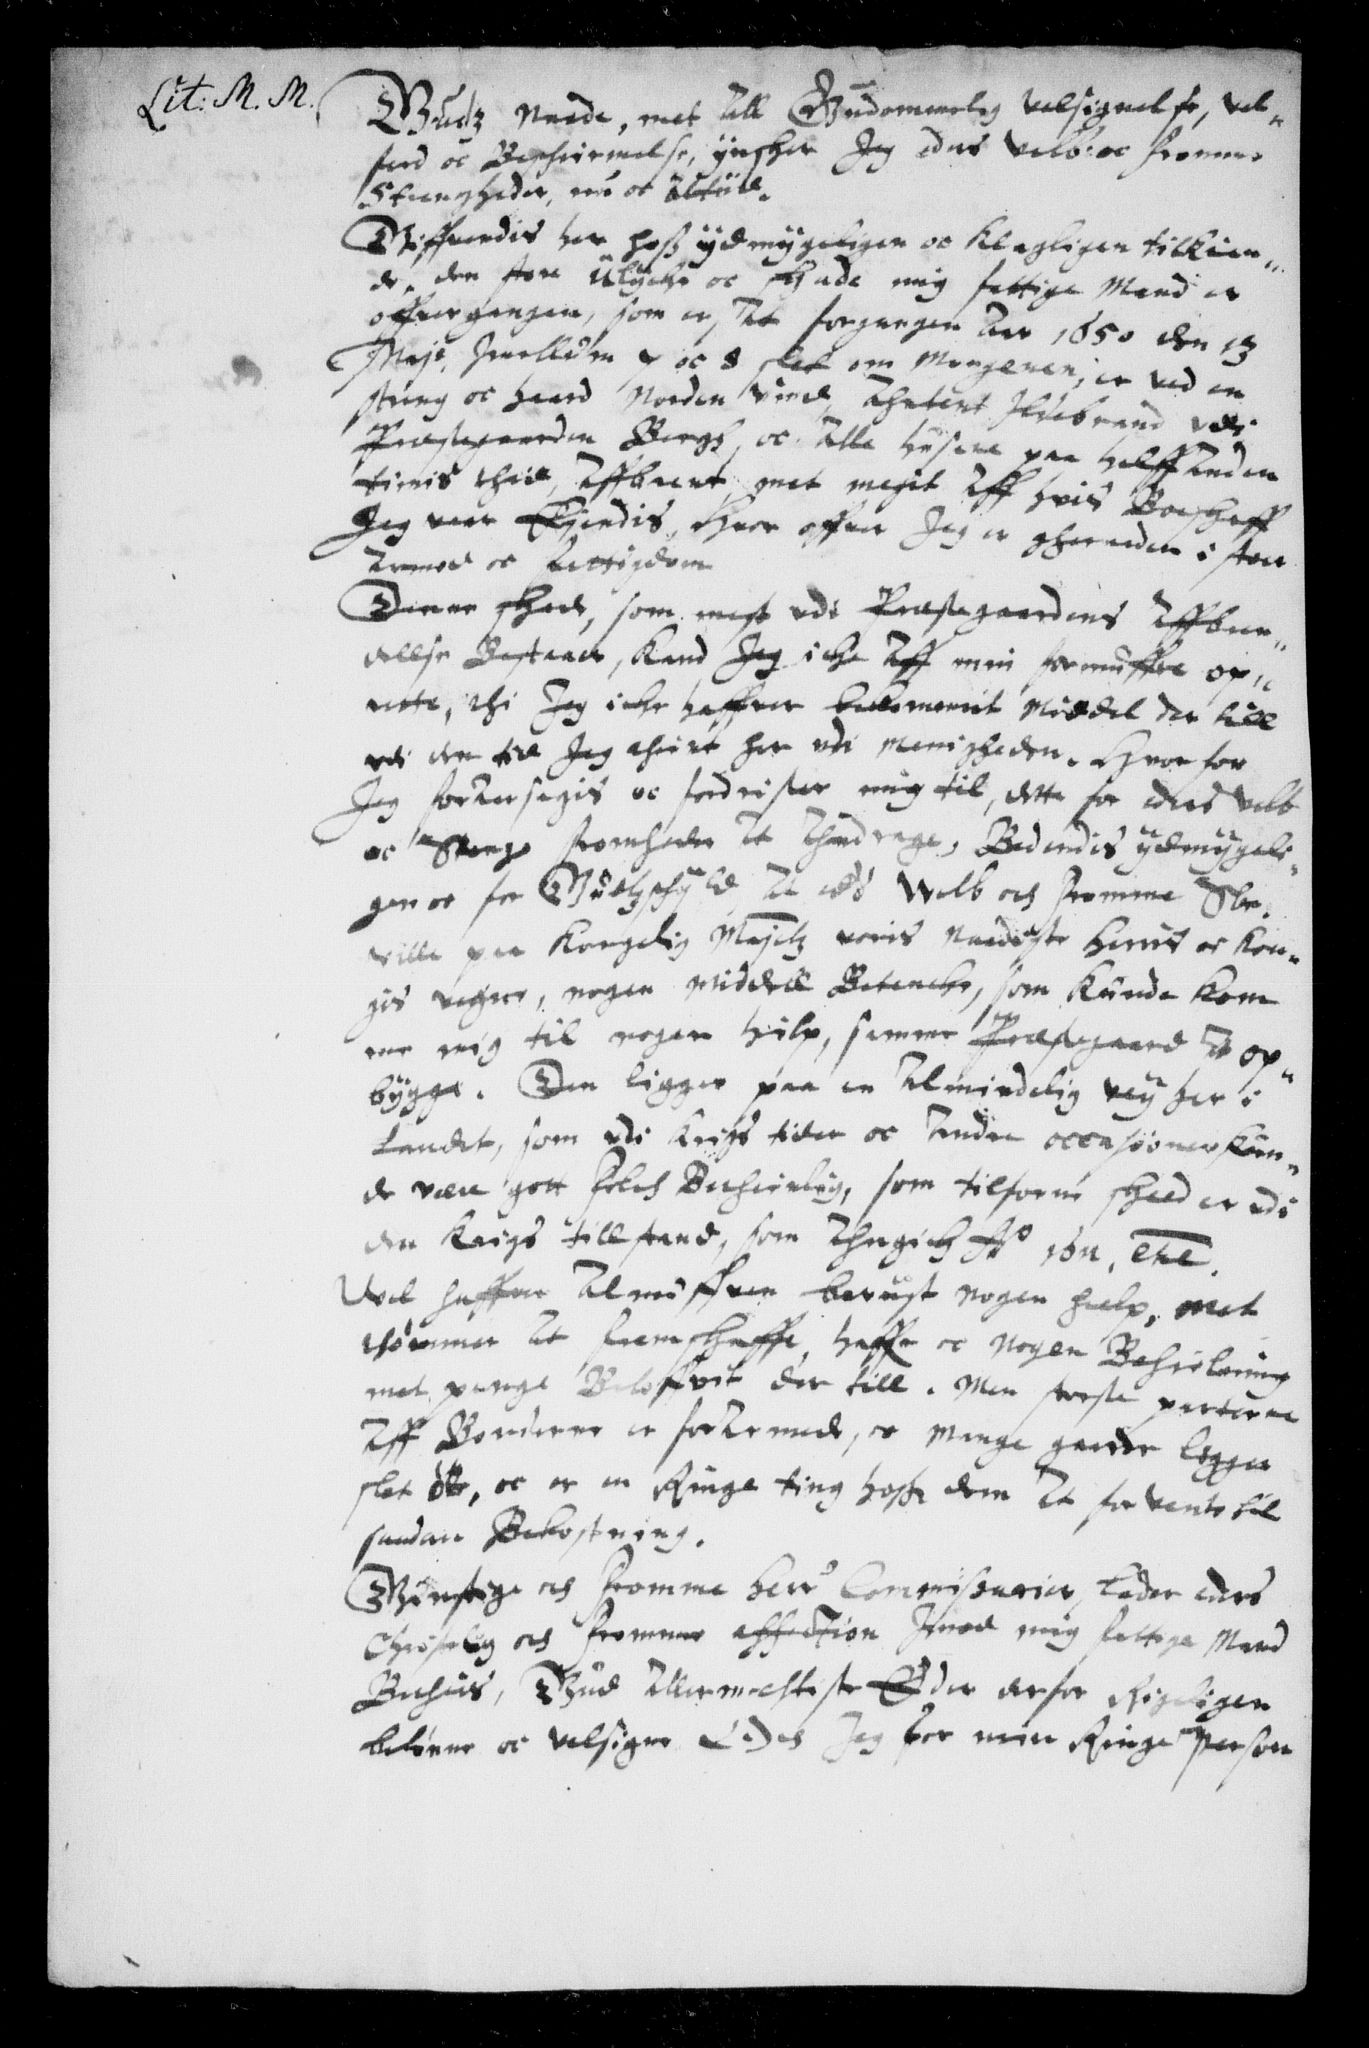 Lit: M. M.
Gudz Naade, met all Gudommelig velsignelse, vel-
ferd oc Beschiermelse, ynscher Jeg eders velb: oc fromme
Strengheder, nu oc altiid.
Giffuendis her hoss ydmygeligen oc klagligen tilkien-
de, den store Ulycke oc schade mig fattige Mand er
offuergangen, som er, at forgangen Aar 1650 den 13
Maji, Imellum 7 oc 8 slet om Morgenen, er ved en
streng oc haard Norden vind, Ildebrand vdi
Præstegaarden Bergh, oc alle husene paa halffanden
timis thid, affbrent, met megit aff hvis Boeschaff
Jeg vaar Eyendis, Huor offuer Jeg er geraaden i stor
Armod oc fattigdom
Denne schade, som mest vdi Præstegaardens affbren-
delse Bestaar, kand Jeg iche aff min formuffue op-
rette, thi Jeg iche haffuer bekommit Middel der till
vdi den tid Jeg thient her vdi Menigheden. Huorfor
Jeg foraarsagis oc fordrister mig til, dette for eders velb
oc Strenge fromheder at andrage, Bedendis ydmygeli-
gen oc for Gudtz schyld, at eders Welb och fromme Str.
ville paa Kongelig Majetz voris Naadigste Herris oc Kon-
gis vegne, nogen middell Betencke, som kunde kom
me mig til nogen hielp, samme Præstegaard at op-
bygge. Den ligger paa en Almindelig vey her i
Landet, som vdi krigs tider oc andre occasioner kun-
de være gott folch Behielplig, som tilforne scheed er vdi
den krigs tillstand, som angich Ao 1611, etc.
Vel haffuer Almuffuen beuist nogen hielp, met
tømmer at fremschaffe, haffuer oc nogen Behielpning
met penge Beloffuit der till. Men største parterne
aff Bønderne er forarmede, oc mange gaarde ligger
slet øde, oc er en Ringe ting hoss dem at forvente til
saadan Bekostning.
Gunstige och fromme Herr Commissarier, lader eders
Christelig och fromme affection Imod mig fattige Mand
Beviis, Gud allermechtigste Eder derfor Rigeligen
belønne oc velsigne och Jeg for min Ringe Person